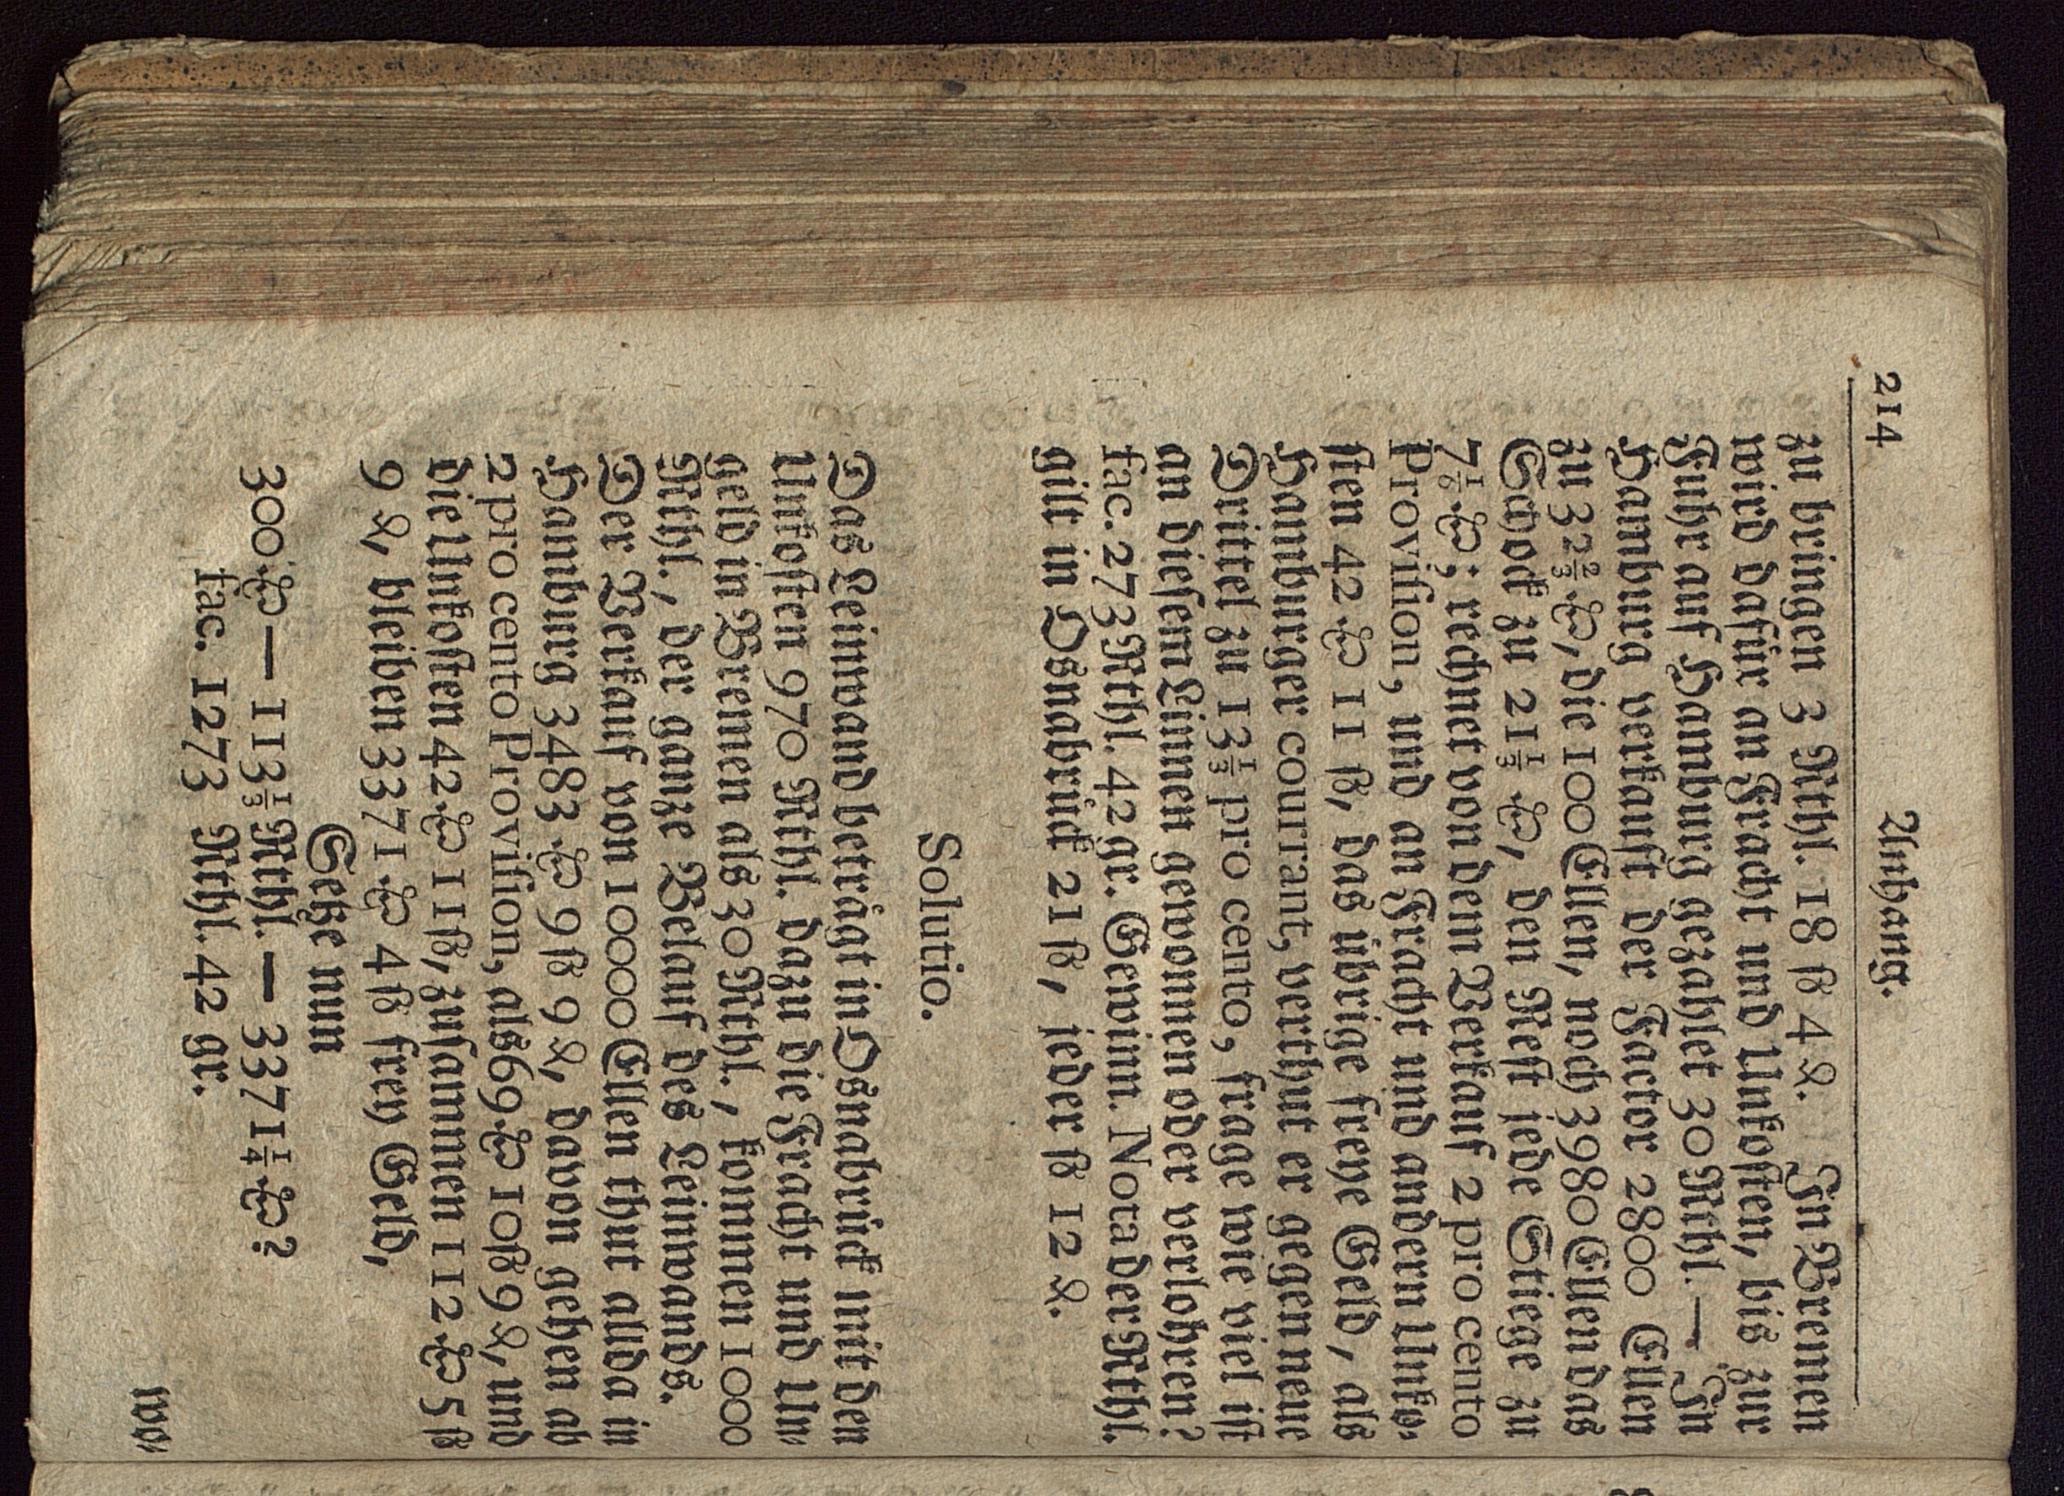 214 Anhang.
zu bringen 3 Rthl. 18 ß 4 ₰. In Bremen
wird dafür an Fracht und Unkosten, bis zur
Fuhr auf Hamburg gezahlet 30 Rthl. — In
Hamburg verkauft der Factor 2800 Ellen
zu 32⅔ ℳ, die 100 Ellen, noch 3980 Ellen das
Schock zu 21⅓ ℳ, den Rest jede Stiege zu
7⅙ ℳ; rechnet von dem Verkauf 2 pro cento
Provision, und an Fracht und andern Unko-
sten 42 ℳ 11 ß, das übrige freye Geld, als
Hamburger courrant, verthut er gegen neue
Drittel zu 13⅓ pro cento, frage wie viel ist
an diesem Linnen gewonnen oder verlohren?
fac. 273 Rthl. 42 gr. Gewinn. Nota der Rthl.
gilt in Osnabrück 21 ß, jeder ß 12 ₰.
Solutio.
Das Leinwand beträgt in Osnabrück mit den
Unkosten 970 Rthl. dazu die Fracht und Un-
geld in Bremen als 30 Rthl., kommen 1000
Rthl., der ganze Belauf des Leinwands.
Der Verkauf von 10000 Ellen thut allda in
Hamburg 3483 ℳ 9 ß 9 ₰, davon gehen ab
2 pro cento Provision, als 69 ℳ 10 ß 9 ₰, und
die Unkosten 42 ℳ 11 ß, zusammen 112 ℳ 5 ß
9 ₰, bleiben 3371 ℳ 4 ß frey Geld,
Setze nun
300 ℳ — 113⅓ Rthl. — 3371¼ ℳ?
fac. 1273 Rthl. 42 gr.
wo-